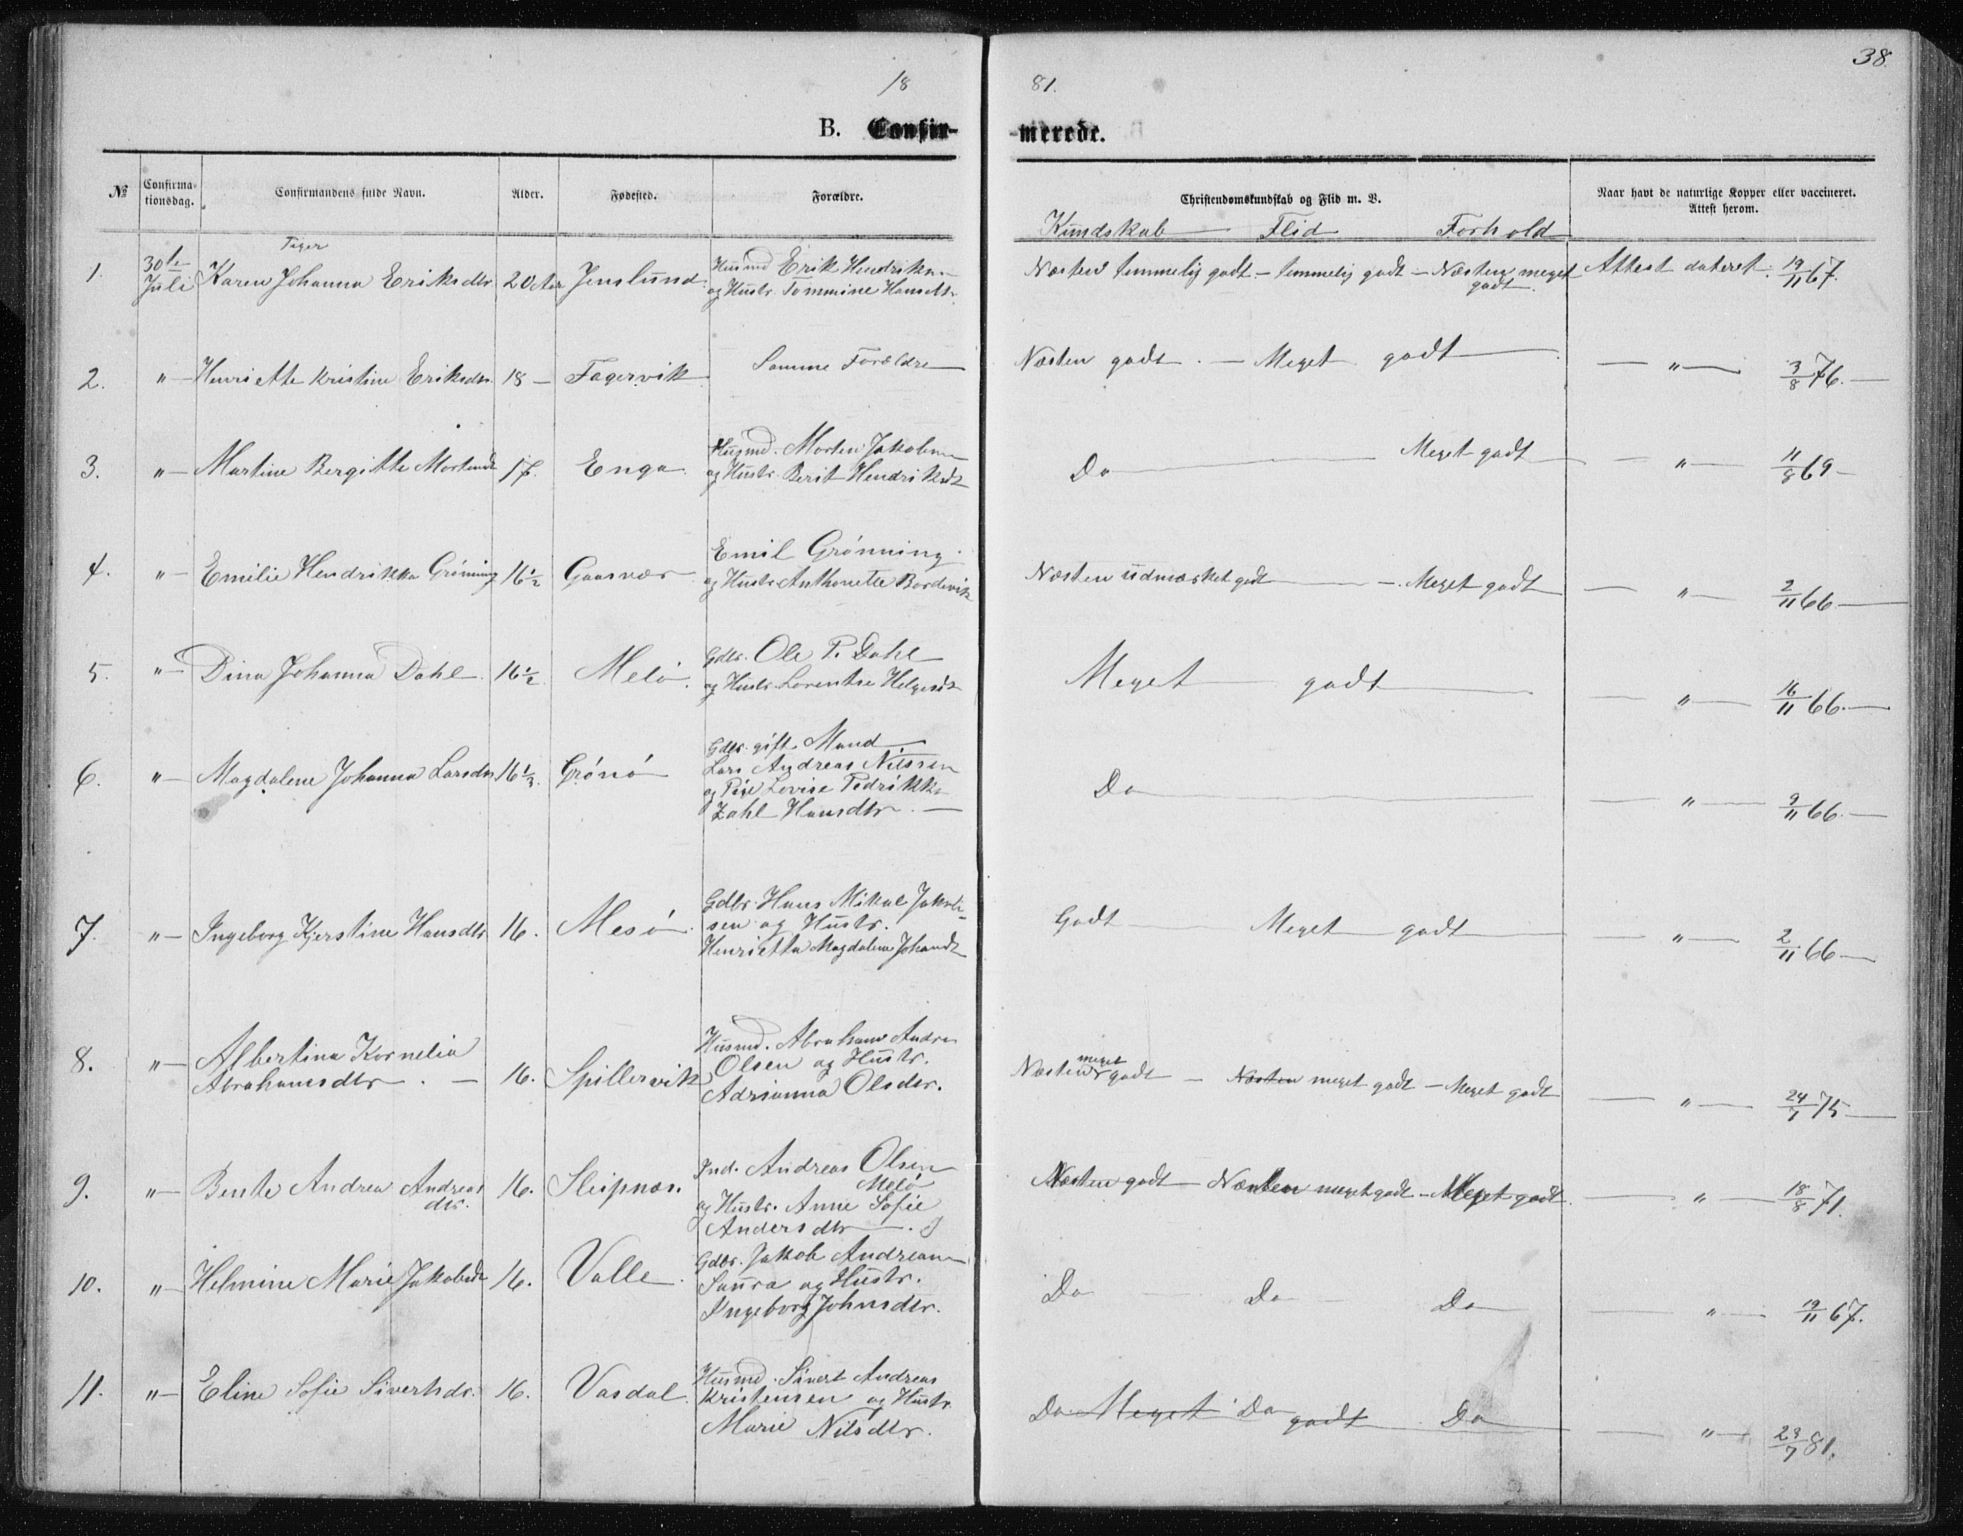 38.
18 81.
B. Confir- merede.
№ Confirma-tionsdag. Confirmandens fulde Navn. Alder. Fødested. Forældre. Christendomskundskab og Flid m. V. Naar havt de naturlige Kopper eller vaccineret. Attest herom.
Kundskab — Flid Forhold
Piger
1. 30te Juli Karen Johanna Eriksdtr 20 Aar Jenslund Husmd Erik Hendriksen Næsten temmelig godt — temmelig godt — Næsten meget godt. Attest dateret 19/11 67.
og Hustr. Tommine Hansdtr.
2. " Henriette Kristine Eriksdtr. 18 — Fagervik Samme Forældre — Næsten godt — Meget godt — " — 3/8 76.
3. " Martine Bergitte Mortensdt 17. Enga Husmd. Morten Jakobsen Do — Meget godt — " — 11/8 69 —
og Hustr. Berit Hendriksdt
4. " Emilie Hendrikka Grönning 16 1/2 Gaasvær Emil Grönning Næsten udmærket godt — Meget godt — " — 2/11 66 —
og Hustr. Anthonette Bordevik
5. " Dina Johanna Dahl 16 1/2 Melö. Gdbr. Ole P. Dahl Meget godt — " — 16/11 66. —
og Hustr. Lorentse Helgesdt
6. " Magdalene Johanna Larsdtr 16 1/3. Grönö Gdbr. gift Mand Do — " — 9/11 66. —
Lars Andreas Nilssen
og Pige Lovise Pedrikke
Zahl Hansdtr. —
7. " Ingeborg Kjerstine Hansdtr 16. Mesö Gdbr. Hans Mikal Jakob- Godt — Meget godt — " — 2/11 66 —
sen og Hustr.
Henrietta Magdalena Johansdt
8. " Albertina Kornelia Abrahamsdtr. — 16. Spillervik Husmd. Abraham Andrea Næsten meget godt — Næsten meget godt — Meget godt — " — 24/7 75 —
Olsen og Hustr.
Adrianna Olsdtr.
9. " Bente Andrea Andreasdtr. 16. Sleipnæs. Ind. Andreas Olsen Næsten godt — Næsten meget godt — Meget godt. — " — 18/8 71.
Melö
og Hustr. Anne Sofie
Andersdtr
10. " Helmine Marie Jakobsdt 16. Valle Gdbr. Jakob Andreas Do — Do — Do — " — 19/11 67.
Saura og Hustr.
Ingeborg Johnsdtr.
11. " Eline Sofie Sivertsdr. 16. Vasdal. Husmd. Sivert Andreas Do Meget Do godt Do — " — 23/7 81.
Kristensen og Hustr.
Marie Nilsdtr.